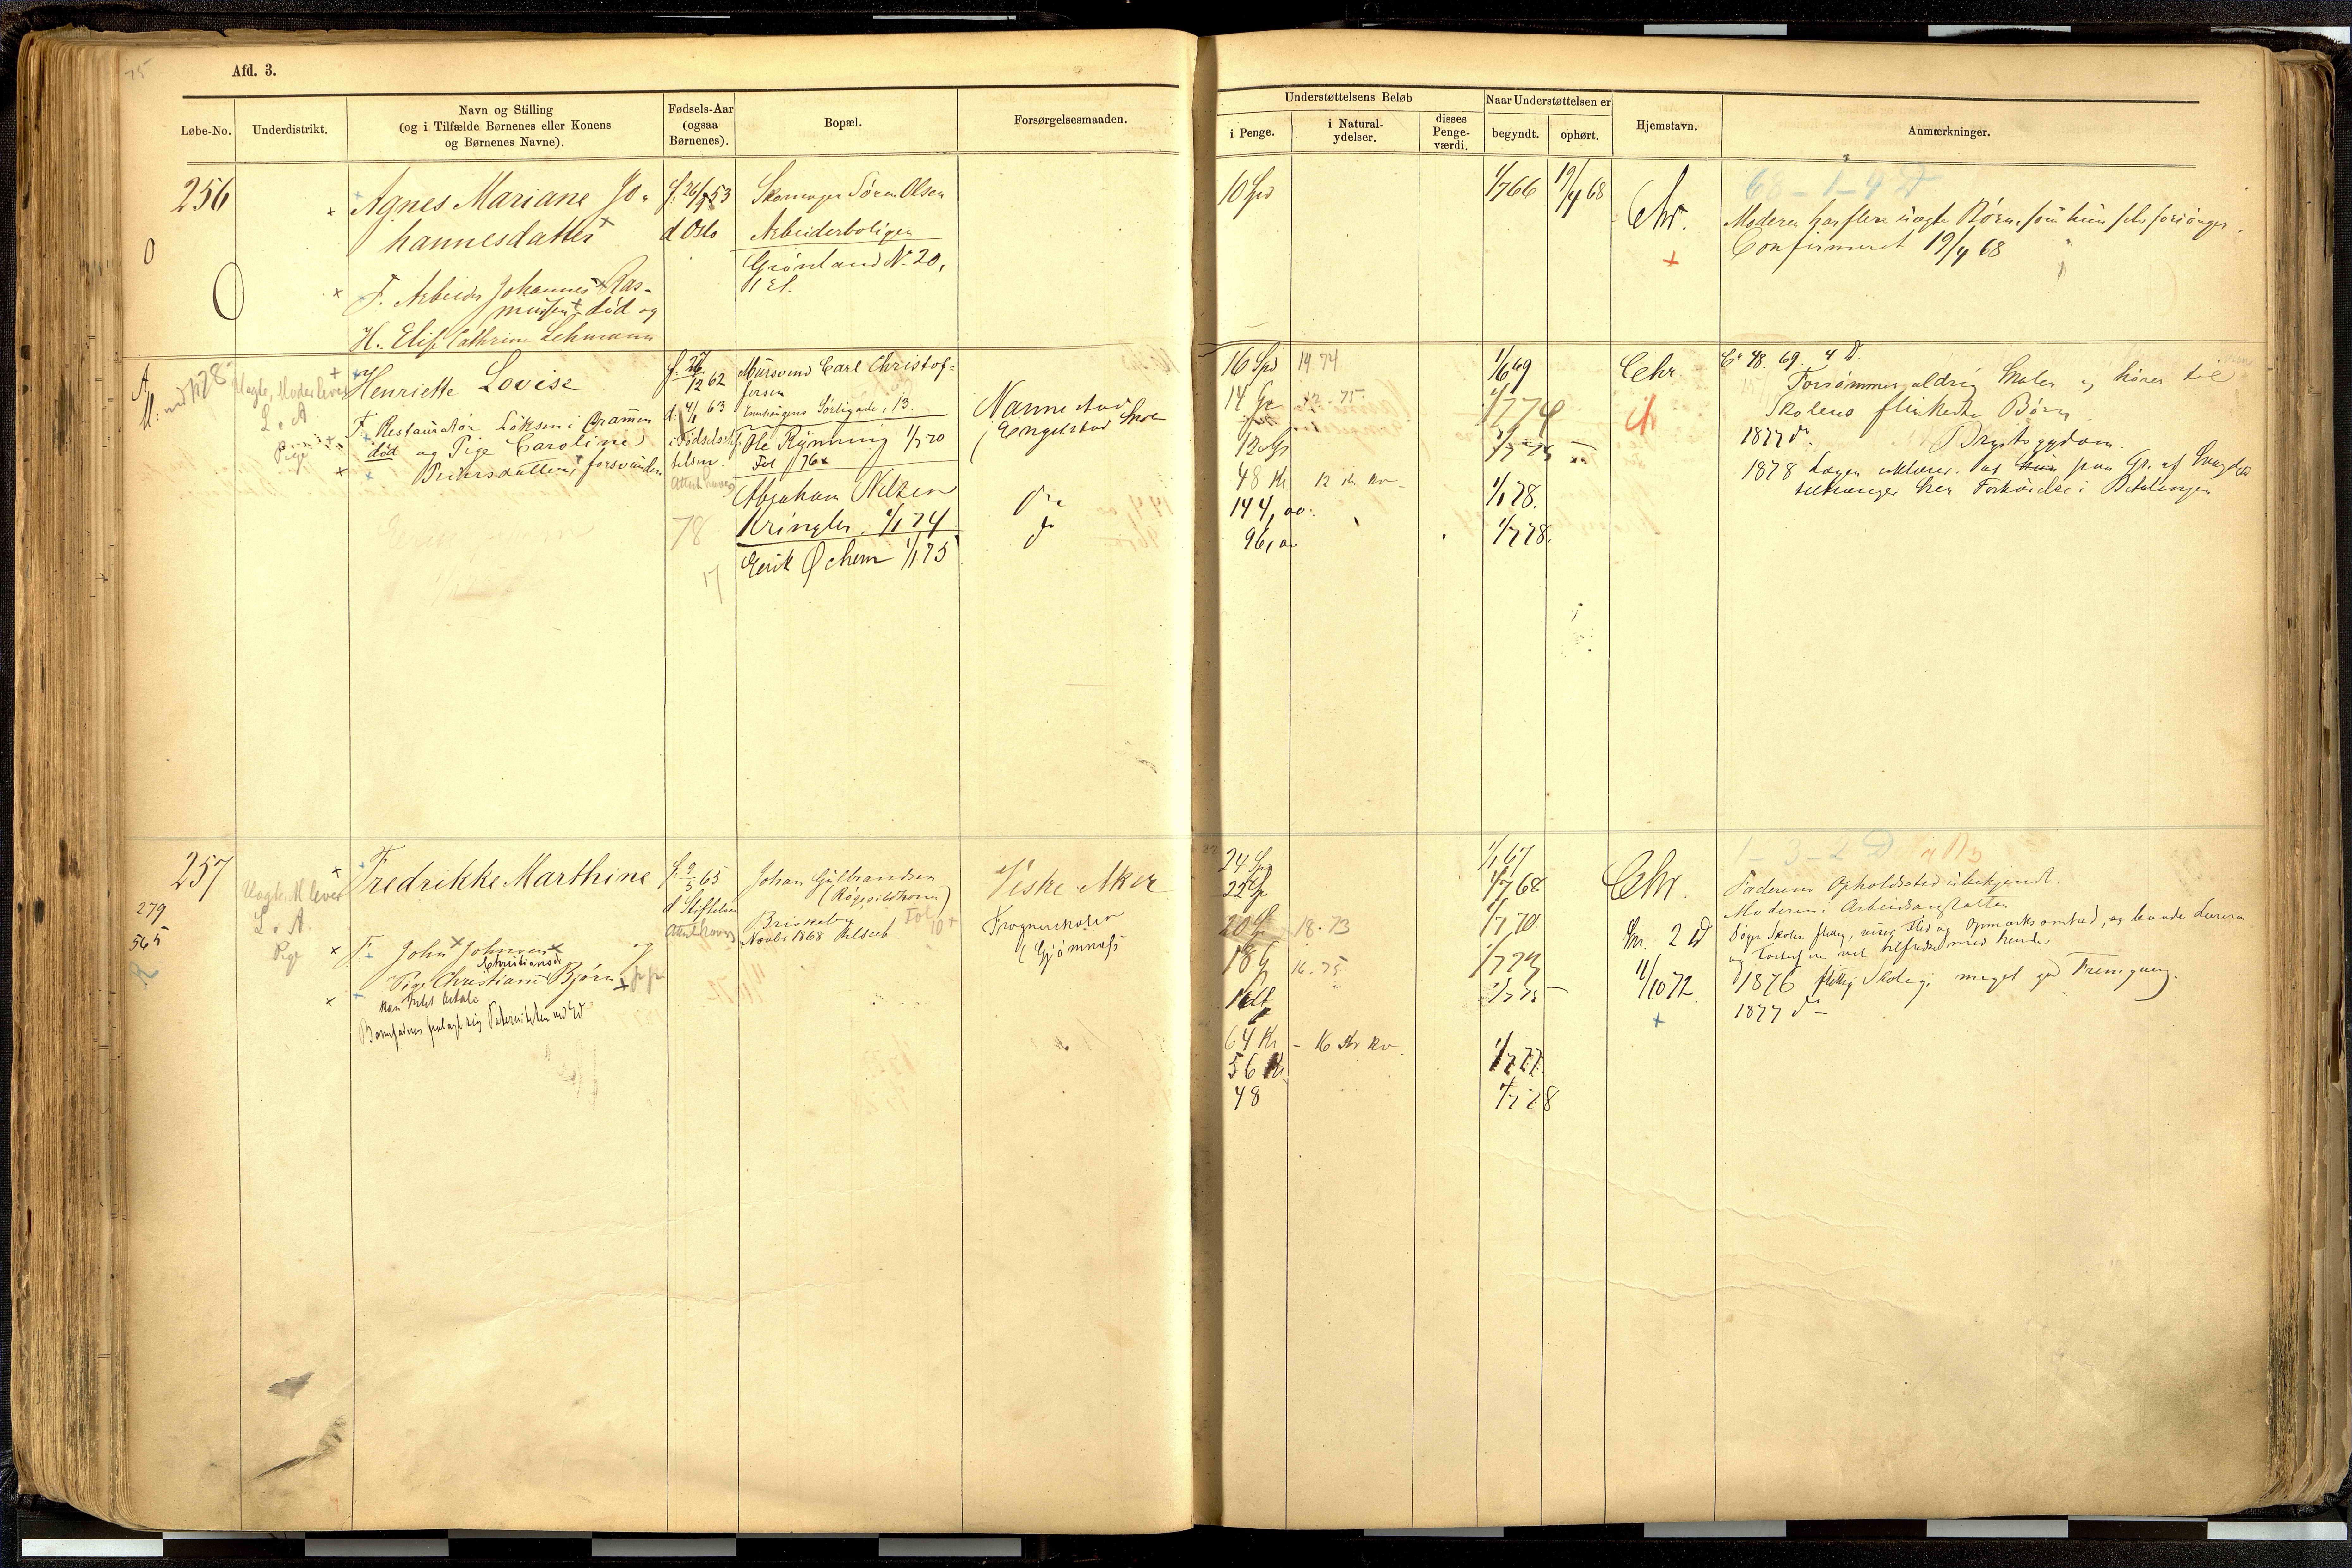 75
Afd. 3.
Løbe-No.
Underdistrikt.
Navn og Stilling
(og i Tilfælde Børnenes eller Konens
og Børnenes Navne).
Fødsels-Aar
(ogsaa
Børnenes).
Bopæl.
Forsørgelsesmaaden.
Understøttelsens Beløb
i Penge.
i Natural-
ydelser.
disses
Penge-
værdi.
Naar Understøttelsen er
begyndt.
ophørt.
Hjemstavn.
Anmærkninger.
256
0
Agnes Mariane Jo-
hannesdatter
F. Arbeider Johannes Ras-
mussen død og
M. Elis. Cathrine Lehmann
d Oslo
Skomager Søren Olsen
Arbeiderboligen
Grønland No 20,
10 Spd
1/7 66
19/4 68
Chr.
68-1-9 D
Moderen har flere uægte Børn, som hun selv forsørger.
Confirmeret 19/4 68
Uægte, Moder lever
L. A
Pige
Henriette Lovise
F. Restauratør Løksen i Drammen
død og Pige Caroline
Pedersdatter, forsvunden
f. 27/12 62
d. 4/1 63
i Fødselsstif
telsen
78
17
Mursvend Carl Christof-
fersen
Enerhaugens Sørligade, 13.
Ole Rynning 1/7 70
Abraham Nilsen
Kringler. 1/1 74
Erik Ochern 1/1 75
Nannestad
Engelstad Skole
Do
Do
16 Spd
14 74
14 Sp
12 - 75
12 Sp
48 Kr
12 Kr Kv
144,00
96,00
1/6 69
1/7 74
1/7 75
1/1 78.
1/7 78.
Chr.
69. 4 D.
Forsømmer aldrig Skolen og hører til
Skolens flinkeste Børn
1877 Do. Brystsygdom.
1878 Lægen erklærer, at hun paa Gr. af Sygd
tiltrænger Forhøielse i Betalingen
257
279
565
Uægte, M lever
L. A.
Pige
Fredrikke Marthine
F. John Johnsen og
Christiansd
Pige Christiane Bjørn
kan Intet betale
Barnefaderen fralagt sig Paterniteten ved Ed
f. 9/5 65
d Stiftelsen
Johan Gulbrandsen
Briskeby
Novbr 1868
Vestre Aker
Frognerskolen
24 Spd
22 Sp
20 Sp
18-73
18 Sp
16-75
16 Sp
64 Kr - 16 Kr Kv.
56 Kr
48
1/1 67
1/7 68
1/7 70
1/7 73
1/7 75
1/7 77.
1/7 78
Chr.
2 D
11/10 72
1-3-2 D
Faderens Opholdssted ubekjendt.
Moderen i Arbeidsanstalten
Søger Skolen flittig, viser Flid og Opmærksomhed, og baade Læreren
og Tilsynet vel tilfreds med hende.
1876 flittig Skoleg. meget god Fremgang.
1877 Do